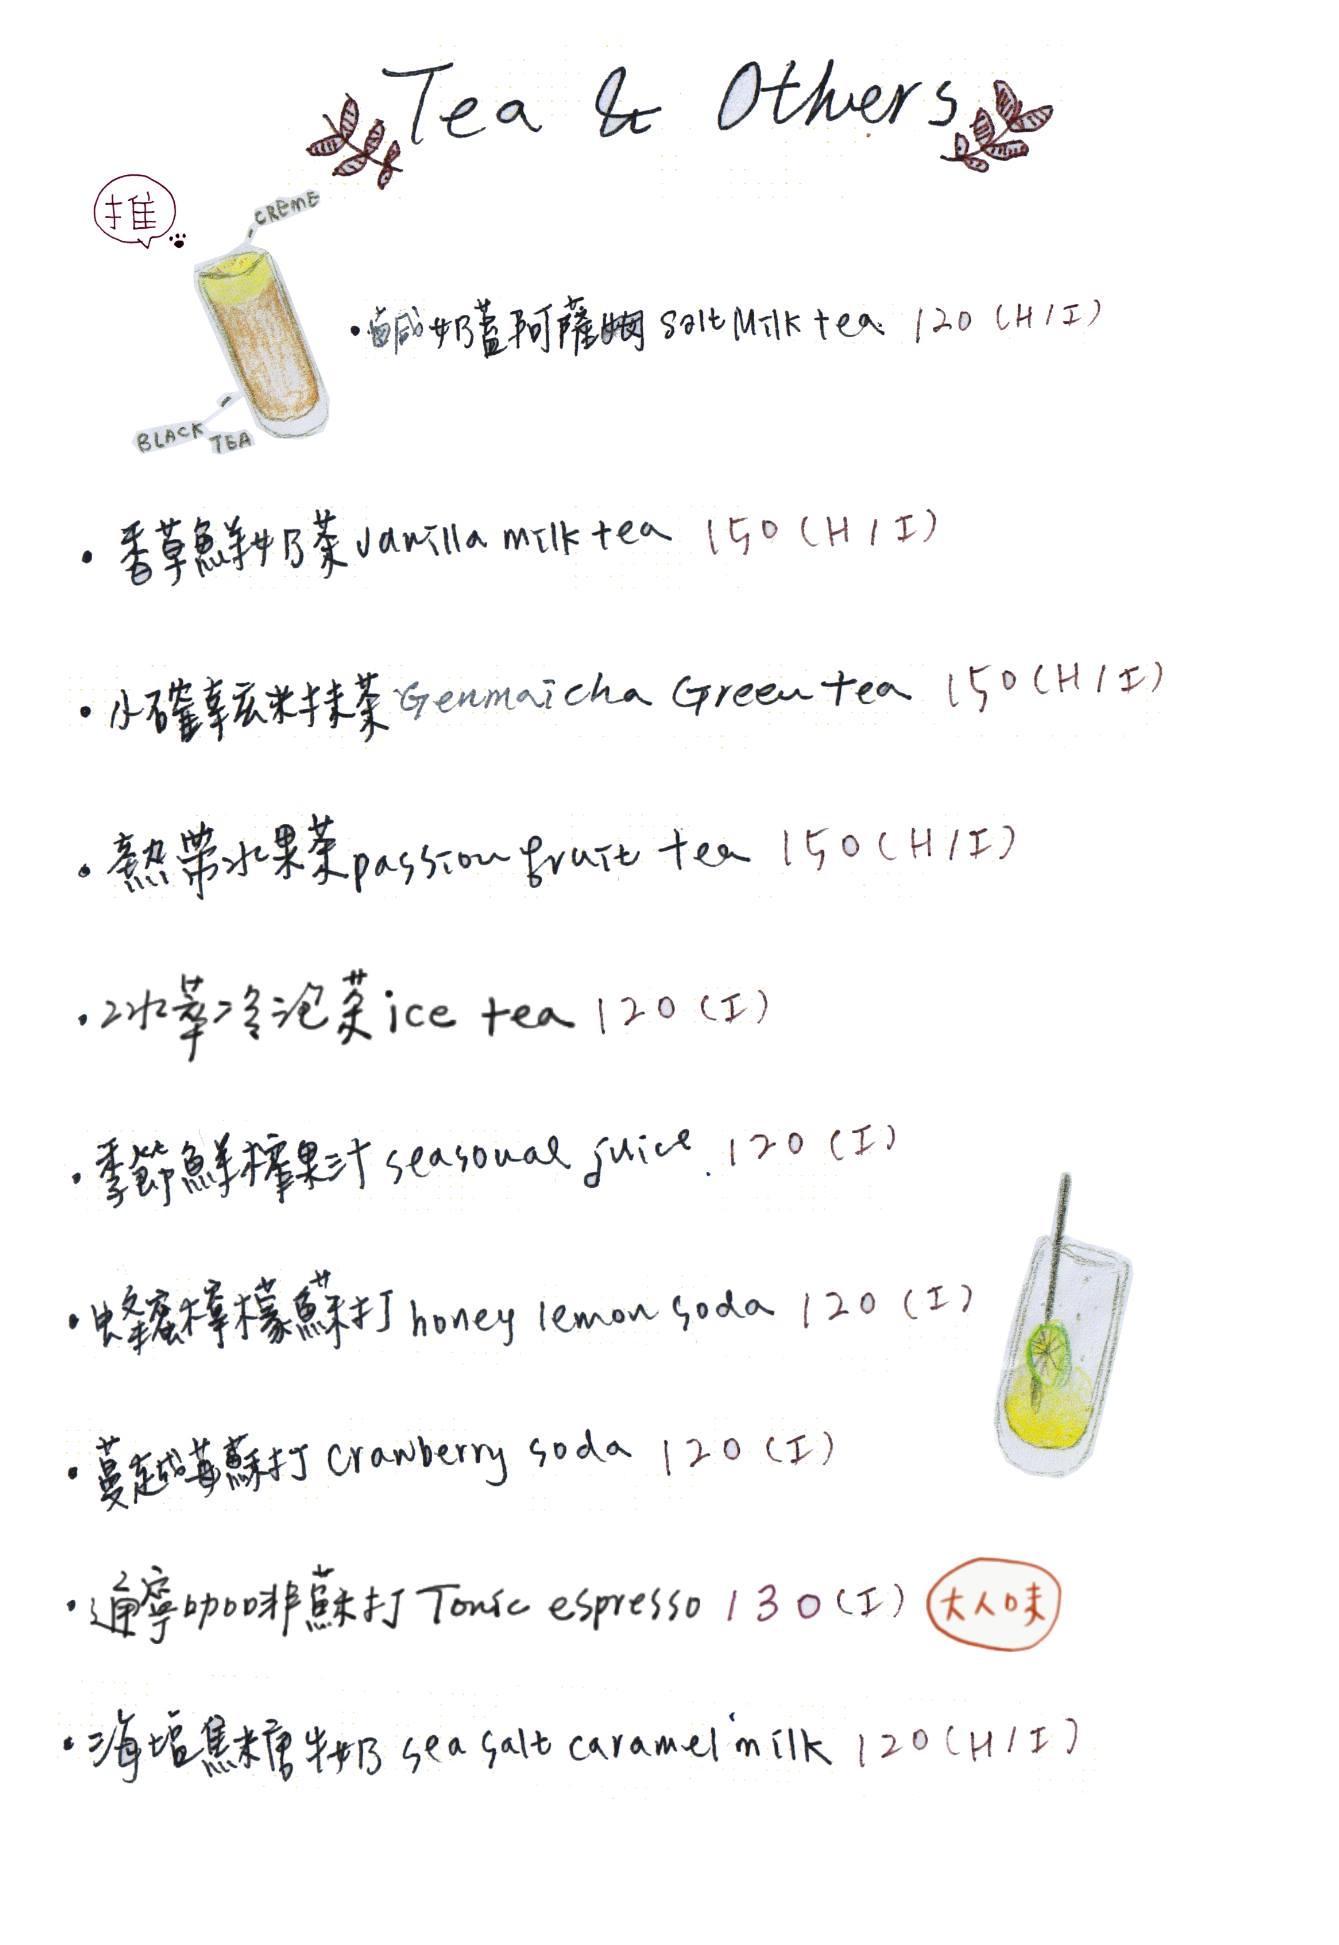 Tea & Others
推
CREME
•鹹奶蓋阿薩姆 Salt Milk tea 120 (H/I)
BLACK TEA
• 香草鮮奶茶 vanilla milk tea 150 (H/I)
• 小確幸玄米抹茶 Genmaicha Green tea 150 (H/I)
• 熱帶水果茶 passion fruit tea 150 (H/I)
• 冰萃冷泡茶 ice tea 120 (I)
• 季節鮮榨果汁 seasonal juice 120 (I)
• 蜂蜜檸檬蘇打 honey lemon soda 120 (I)
• 蔓越莓蘇打 Cranberry soda 120 (I)
• 通寧咖啡蘇打 Tonic espresso 130 (I) 大人味
• 海塩焦糖牛奶 sea salt caramel milk 120 (H/I)